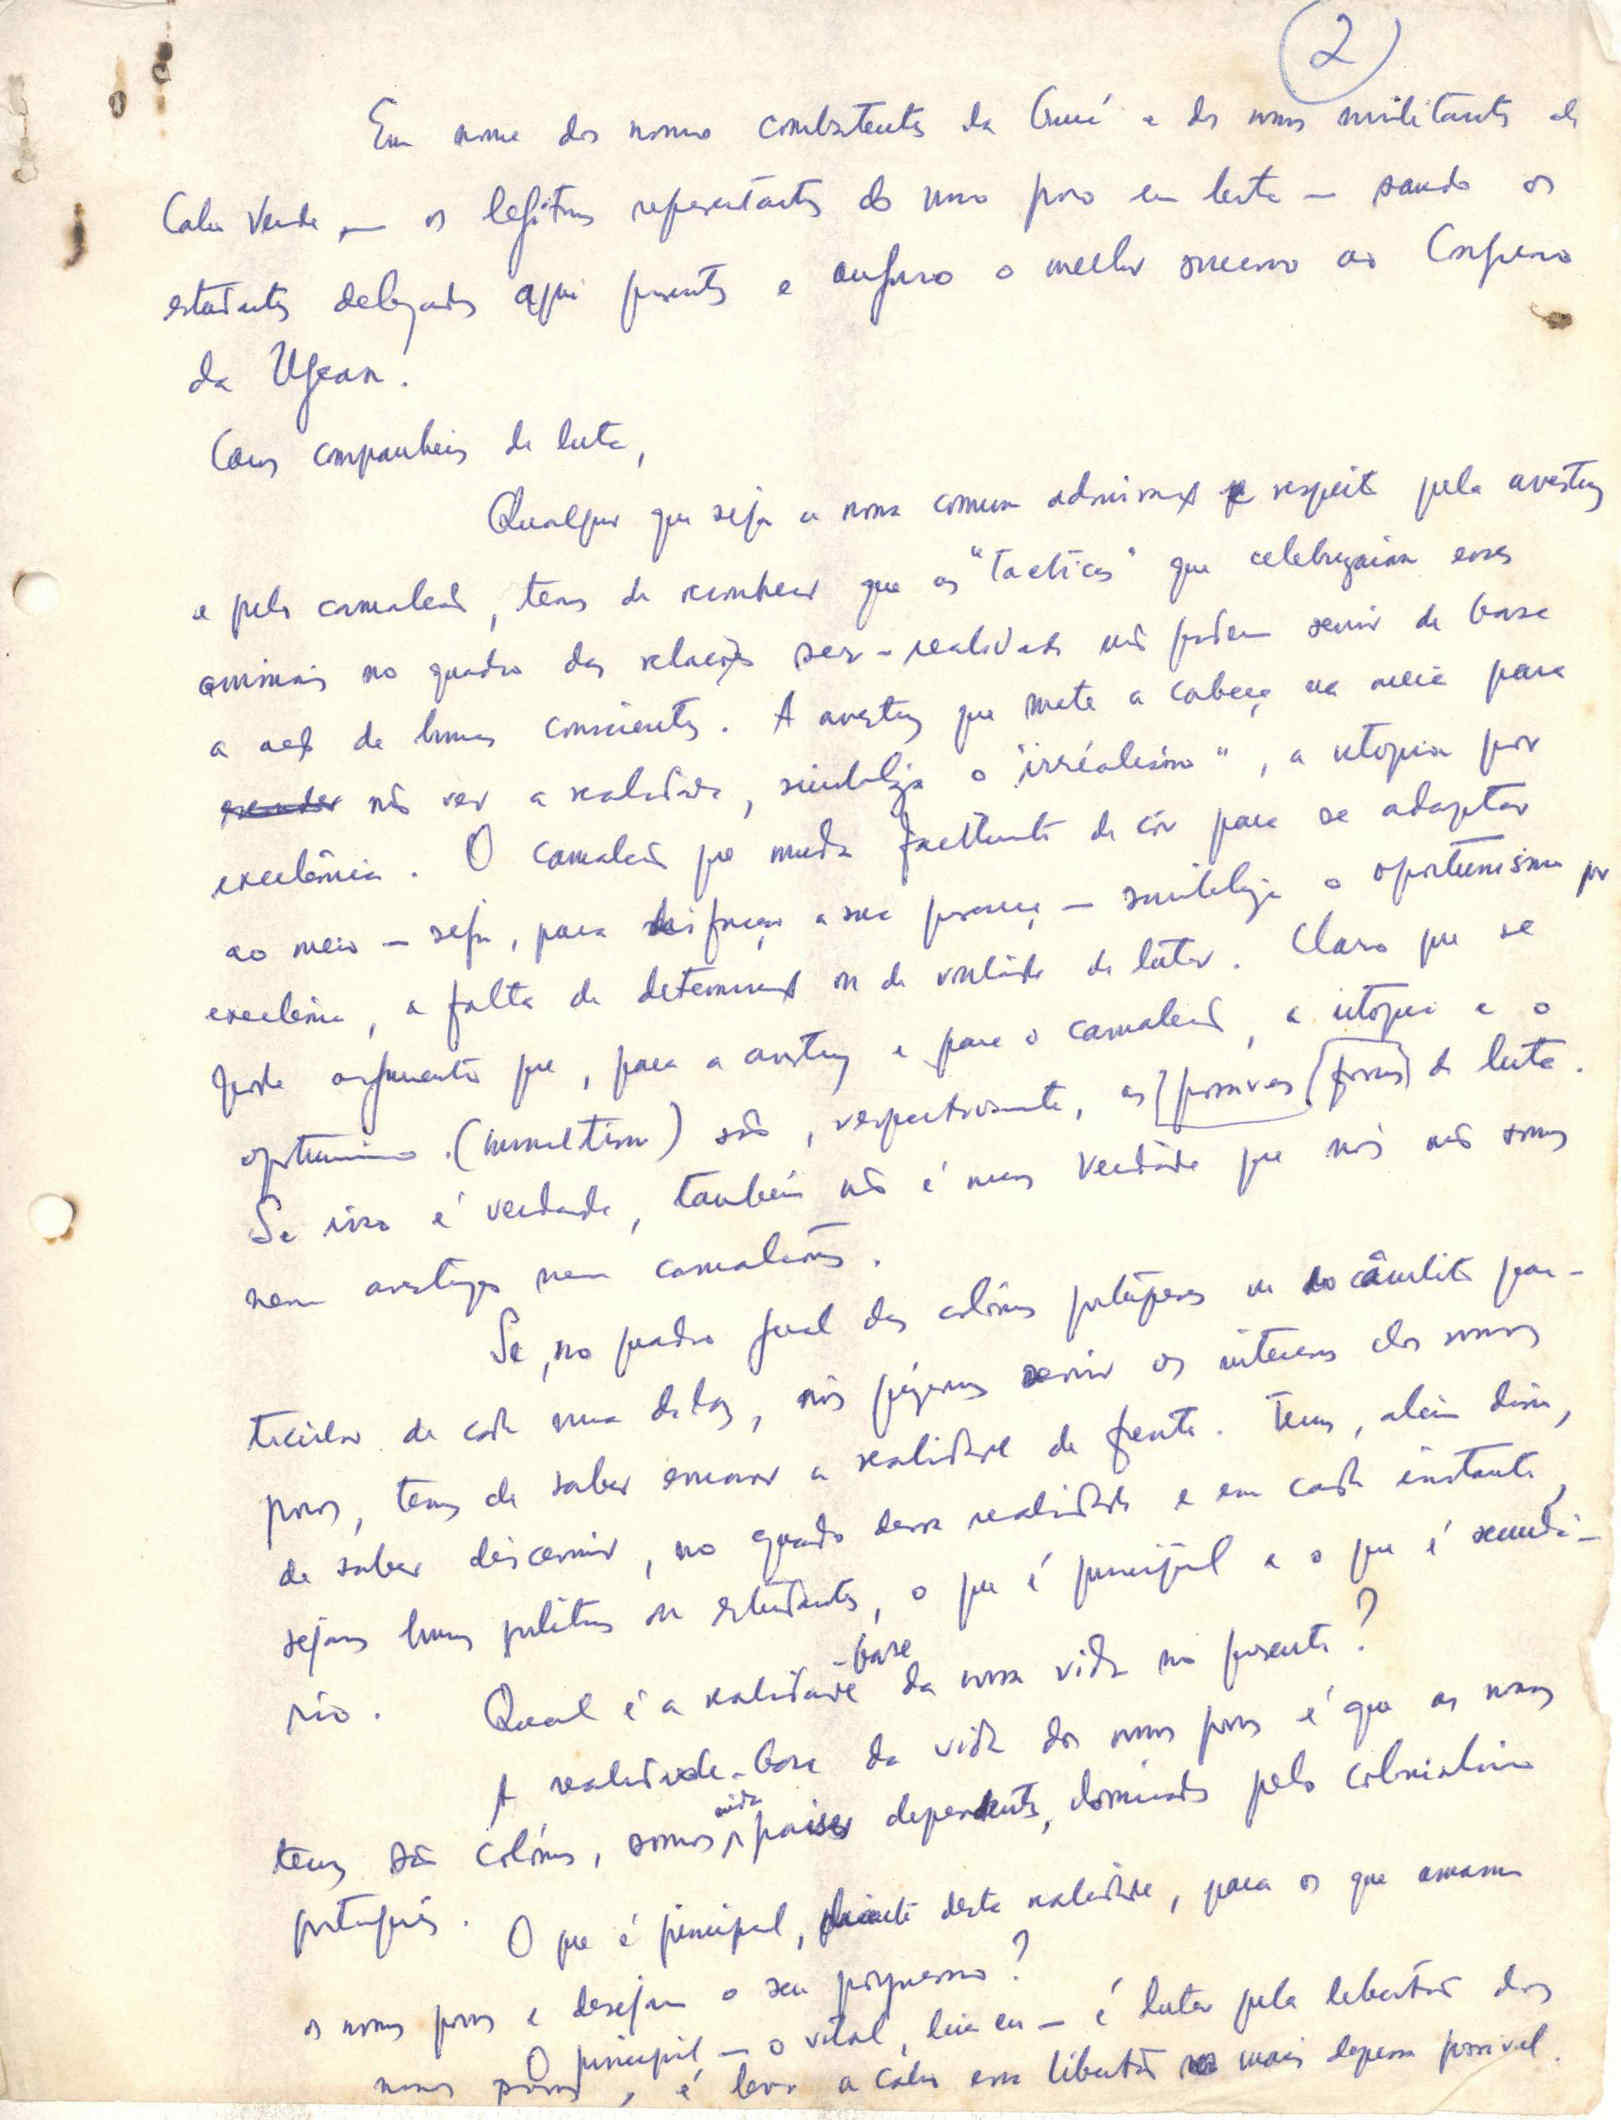 2
Em nome dos nossos combatentes da Guiné e dos nossos militantes de
Cabo Verde — os legítimos representantes do nosso povo em luta — saúdo os
estudantes delegados aqui presentes e auguro o melhor sucesso ao Congresso
da Ugean.
Caros companheiros de luta,
Qualquer que seja a nossa comum admiração e respeito pela avestruz
e pelo camaleão, temos de reconhecer que as "tacticas" que celebrizaram esses
animais no quadro das relações ser-realidade não podem servir de base
a acção de homens conscientes. A avestruz que mete a cabeça na areia para
não ver a realidade, simboliza o "irréalismo", a utopia por
excelência. O camaleão que muda facilmente de côr para se adaptar
ao meio — seja, para disfarçar a sua presença — simboliza o oportunismo por
excelência, a falta de determinação ou de vontade de lutar. Claro que se
pode argumentar que, para a avestruz e para o camaleão, a utopia e o
oportunismo () são, respectivamente, as [possíveis [formas] de luta.
Se isso é verdade, também não é menos verdade que nós não somos
nem avestruzes nem camaleões.
Se, no quadro geral das colónias portuguesas ou no âmbito par-
ticular de cada uma delas, nós quizermos servir os interesses dos nossos
povos, temos de saber encarar a realidade de frente. Temos, além disso,
de saber discernir, no quadro dessa realidade e em cada instante,
sejamos homens politicos ou estudantes, o que é principal e o que é secundá-
rio. Qual é a realidade-base da nossa vida no presente?
A realidade-base da vida dos nossos povos é que as nossas
terras são colónias, somos ainda paises dependentes, dominados pelo colonialismo
português. O que é principal, diante desta realidade, para os que amam
os nossos povos e desejam o seu progresso?
O principal — o vital, direi eu — é lutar pela libertação dos
nossos povos, é levar a cabo essa libertação o mais depressa possivel.